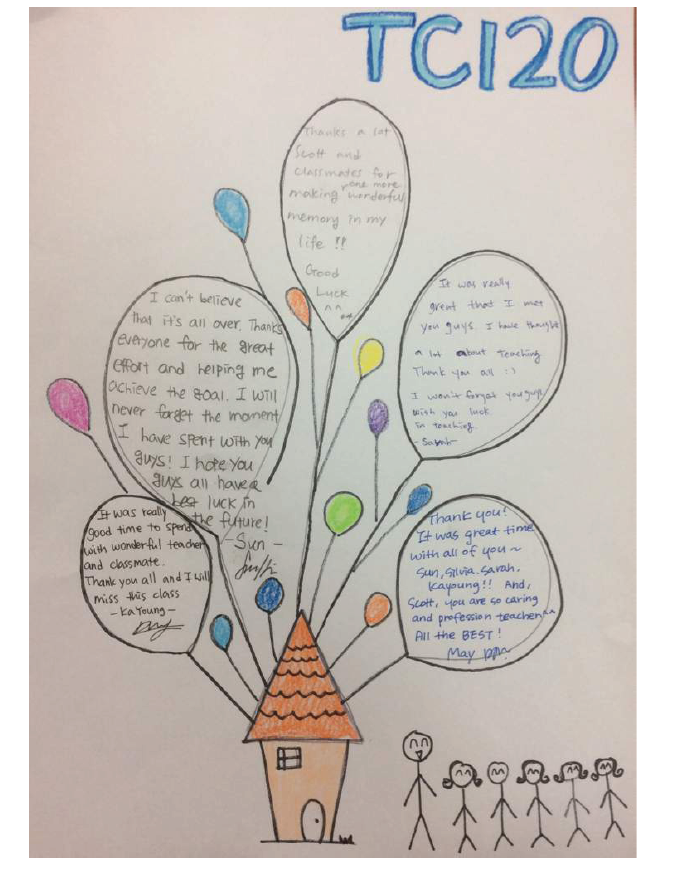 TCI20
Thanks a lot
Scott and
classmates for
one more
making wonderful
memory in my
life !!
Good
Luck
^^
I can't believe
that it's all over. Thanks
everyone for the great
effort and helping me
achieve the goal. I will
never forget the moment
I have spent with you
guys! I hope you
guys all have a
best luck in
the future!
- Sun -
It was really
great that I met
you guys. I have thought
a lot about Teaching
Thank you all :)
I won't forget you guys
With you luck
in teaching
- Sarah -
It was really
good time to spend
with wonderful teacher
and classmate.
Thank you all and I will
miss this class
- KaYoung -
Thank you!
It was great time
with all of you ~
Sun, Silvia. Sarah.
Kayoung!! And,
Scott, you are so caring
and profession teacher^^
All the BEST!
May